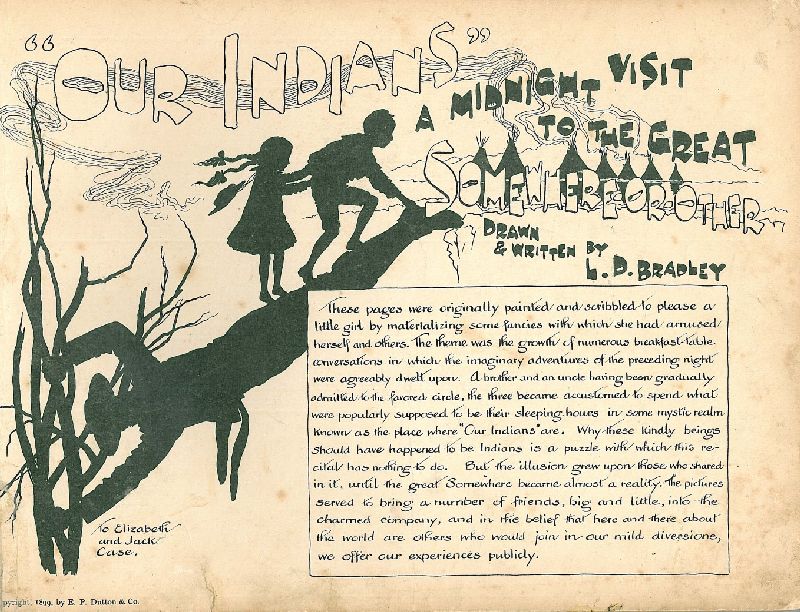 "OUR INDIANS"
A MIDNIGHT VISIT
TO THE GREAT
SOMEWHEREOROTHER
DRAWN
& WRITTEN BY
L. D. BRADLEY
These pages were originally painted and scribbled to please a
little girl by materializing some fancies with which she had amused
herself and others. The theme was the growth of numerous breakfast-table
conversations in which the imaginary adventures of the preceding night
were agreeably dwelt upon. A brother and an uncle having been gradually
admitted to the favored circle, the three became accustomed to spend what
were popularly supposed to be their sleeping hours in some mystic realm
known as the place where "Our Indians" are. Why these kindly beings
should have happened to be Indians is a puzzle with which this re-
cital has nothing to do. But the illusion grew upon those who shared
in it, until the great Somewhere became almost a reality. The pictures
served to bring a number of friends, big and little, into the
charmed company, and in the belief that here and there about
the world are others who would join in our mild diversions,
we offer our experiences publicly.
To Elizabeth
and Jack
Case.
pyright, 1899, by E. P. Dutton & Co.